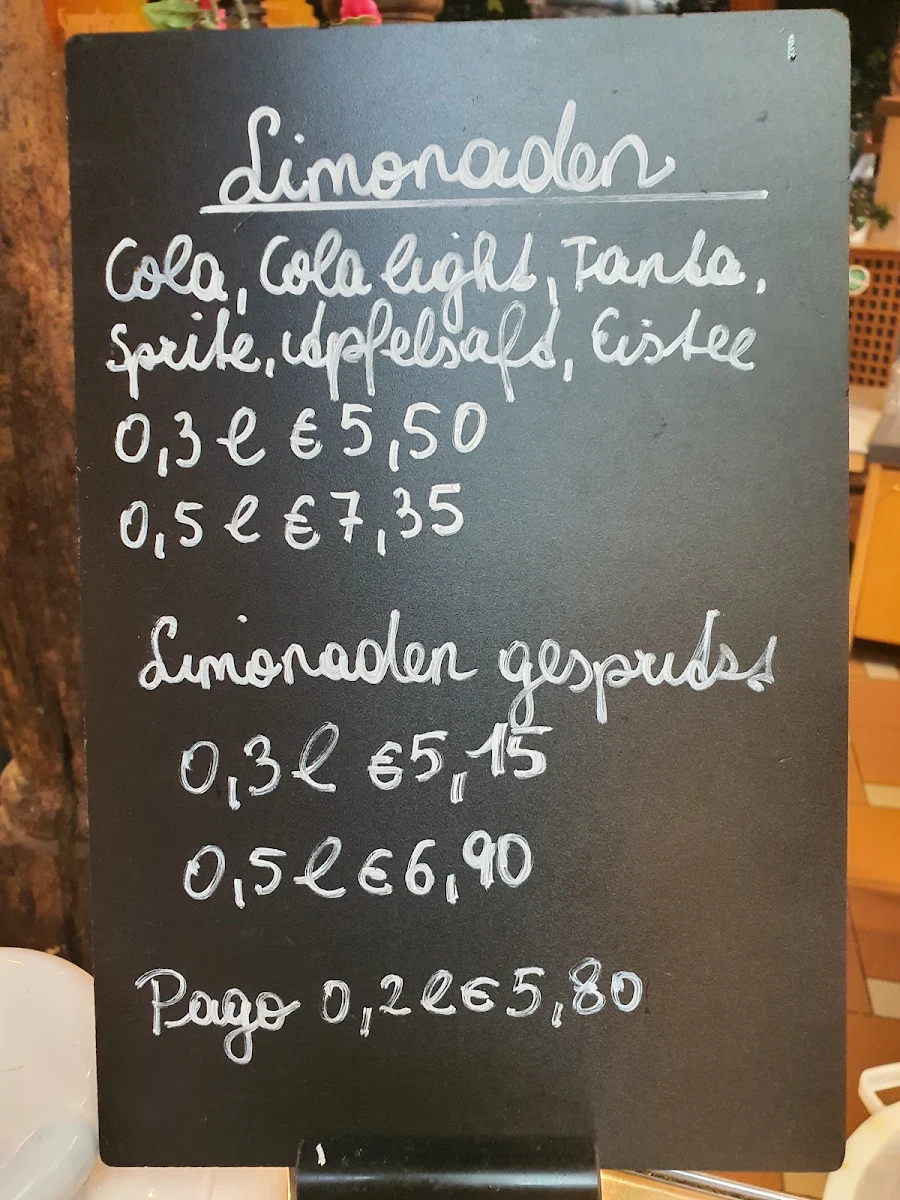 Limonaden
Cola, Cola light, Fanta,
Sprite, Apfelsaft, Eistee
0,3 l € 5,50
0,5 l € 7,35
Limonaden gespritzt
0,3 l €5,15
0,5 l €6,90
Pago 0,2 l € 5,80